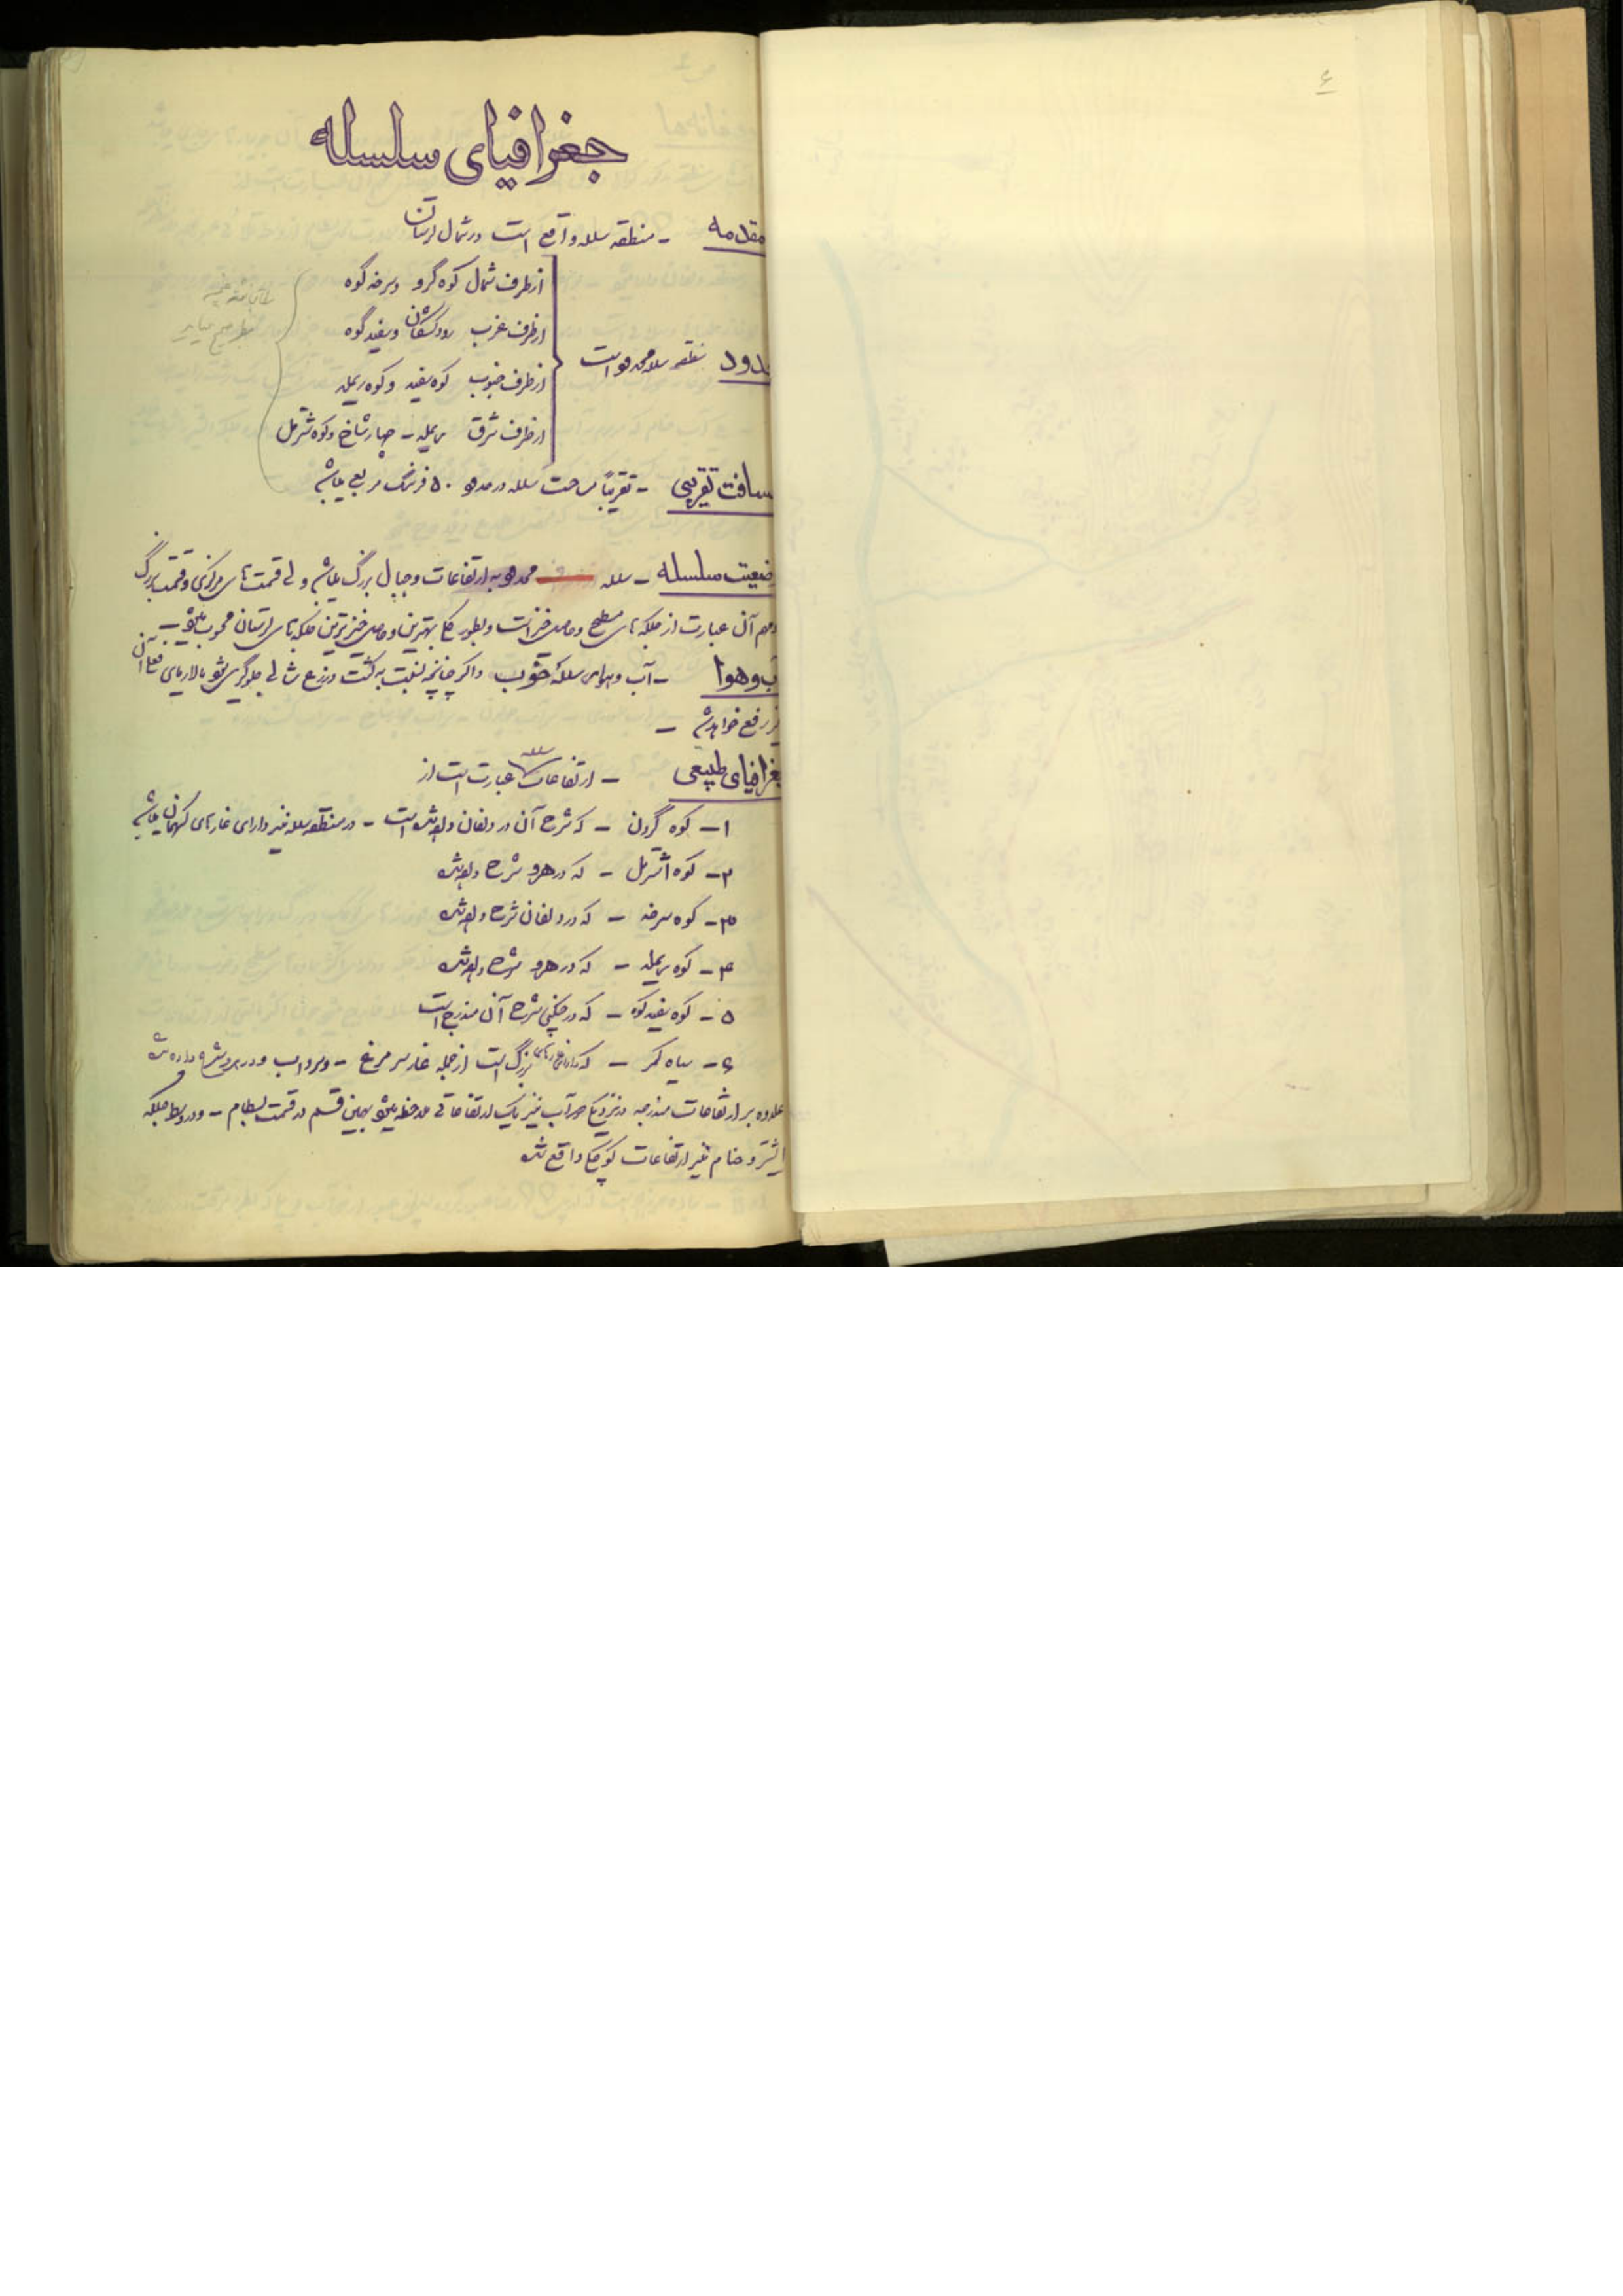 ۶
جغرافیای سلسله
مقدمه - منطقه سلسله واقع است در شمال لرستان
حدود منطقه سلسله محدود است
از طرف شمال کوه گرو و سرخه کوه
از طرف غرب رود کشکان و سفید کوه
از طرف جنوب کوه سفید و کوه ریمله
از طرف شرق ریمله - چهار شاخ و کوه شترمل
مسافت تقریبی - تقریباً مساحت سلسله در حدود ۵۰ فرسنگ مربع میباشد
وضعیت سلسله - سلسله محدود به ارتفاعات و جبال بزرگ میباشد ولی قسمت های مرکزی و قسمت بزرگ
و مهم آن عبارت از جلگه های مسطح و حاصلخیز است و بطور کلی بهترین و حاصلخیزترین جلگه های لرستان محسوب میشود
آب و هوا - آب و هوای سلسله خوب و اگر چنانچه نسبت به کشت و زرع شالی جلوگیری شود مالاریای فعلی آن
نیز رفع خواهد شد -
جغرافیای طبیعی - ارتفاعات سلسله عبارت است از
۱- کوه گرون - که شرح آن در دلفان داده شده است - در منطقه سلسله نیز دارای غارهای کهمان میباشد
۲- کوه اشترمل - که در هرو شرح داده شده
۳- کوه سرخه - که در دلفان شرح داده شده
۴- کوه ریمله - که در هرو شرح داده شده
۵- کوه سفید کوه - که در چگنی شرح آن مندرج است
۶- سیاه کمر - که دارای غارهای بزرگ است از جمله غار سرمرغ - و سرداب و در شرح داده شده
علاوه بر ارتفاعات مندرجه در نزدیکی آب نیز یک ارتفاعاتی ملاحظه میشود بهمین قسم در قسمت بسطام - و در وسط جلگه
الشتر و خنام نیز ارتفاعات کوچکی واقع شده